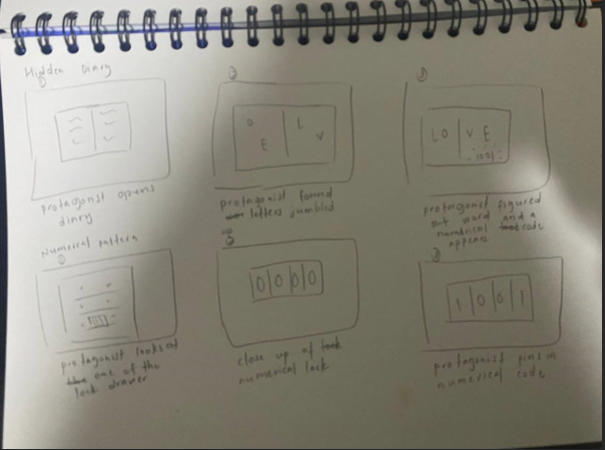 Hidden Diary
①
protagonist opens
diary
②
O L
E V
protagonist found
letters jumbled
③
LO V E
1001
protagonist figured
out word and a
numerical code
appears
Numerical pattern
①
protagonist looks at
one of the
lock drawer
②
0 0 0 0
close up of
numerical lock
③
1 0 0 1
protagonist pins in
numerical code